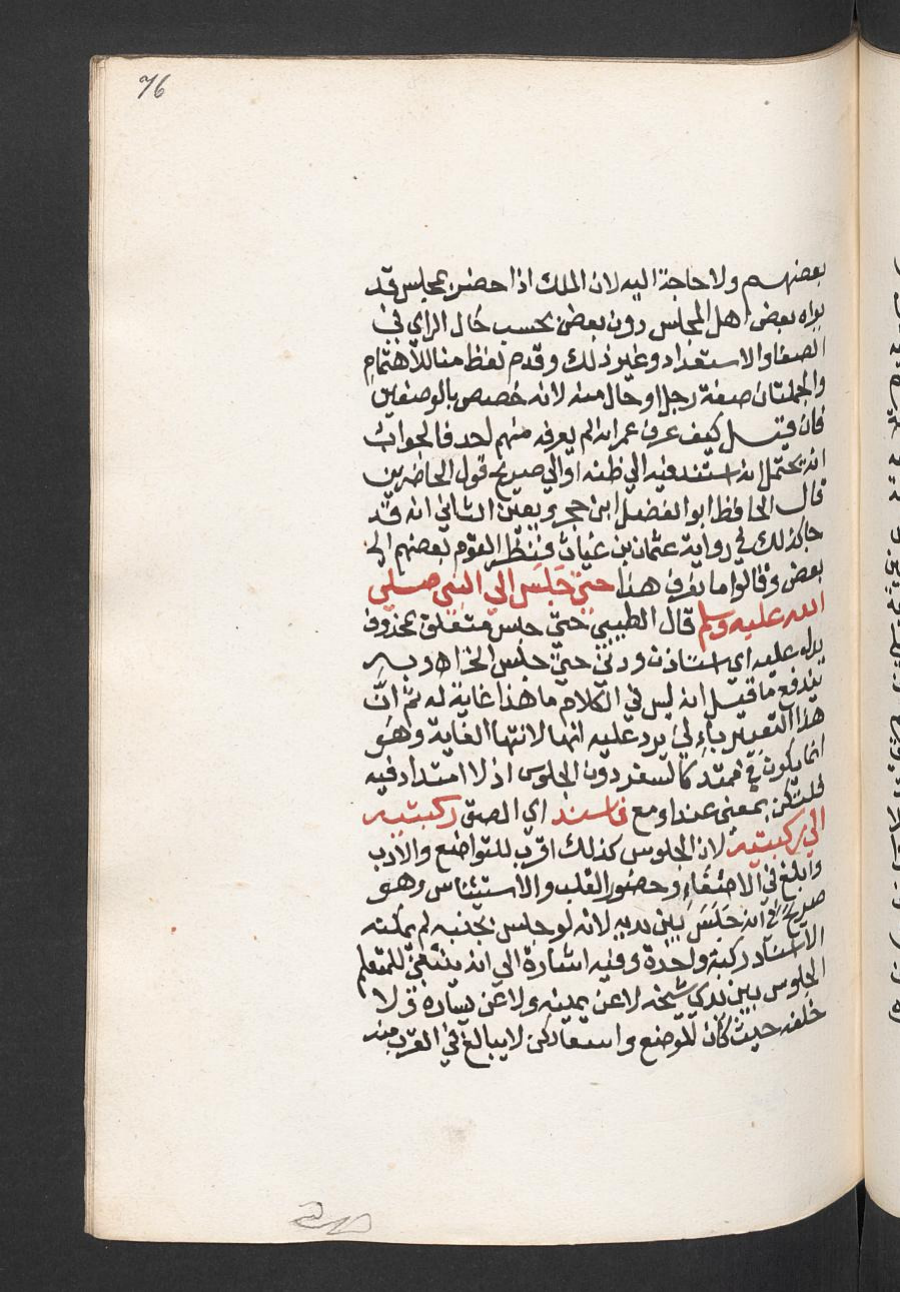 76
بعضهم ولا حاجة اليه لان الملك اذا حضر بمجلس قد
يراه بعض اهل المجلس دون بعض بحسب حال الراي في
الصفا والاستعداد وغير ذلك وقدم لفظ منا للاهتمام
والجملتان صفة رجل او حال منه لانه خصيص بالوصفين
فان قيل كيف عرف عمر انه لم يعرفه منهم احد فالجواب
انه يحتمل انه استند فيه الي ظنه او الي صريح قول الحاضرين
قال الحافظ ابو الفضل ابن حجر ويعين الثاني انه قد
جا كذلك في رواية عثمان بن غياث فنظر القوم بعضهم الي
بعض وقالوا ما نعرف هذا حتي جلس الي النبي صلي
الله عليه وسلم قال الطيبي حتي جلس متعلق بمحذوف
يدل عليه اي استاذن ودني حتي جلس الخ اه وبه
يندفع ما قيل انه ليس في الكلام ما هذا غاية له ثم انّ
هذا التعبير بالي يرد عليه انها لانتها الغاية وهو
انما يكون في ممتد كالسفر دون الجلوس اذ لا امتداد فيه
فلتكن بمعني عند او مع فاسند اي الصق ركبتيه
الي ركبتيه لان الجلوس كذلك اقرب للتواضع والادب
وابلغ في الاصغاء وحضور القلب والاستئناس وهو
صريح في انه جلس بين يديه لانه لو جلس بجنبه لم يمكنه
الاسناد ركبة واحدة وفيه اشارة الي انه ينبغي للمتعلم
الجلوس بين يدي شيخه لا عن يمينه ولا عن يساره ولا
خلفه حيث كان الموضع واسعا لكن لا يبالغ في القرب منه